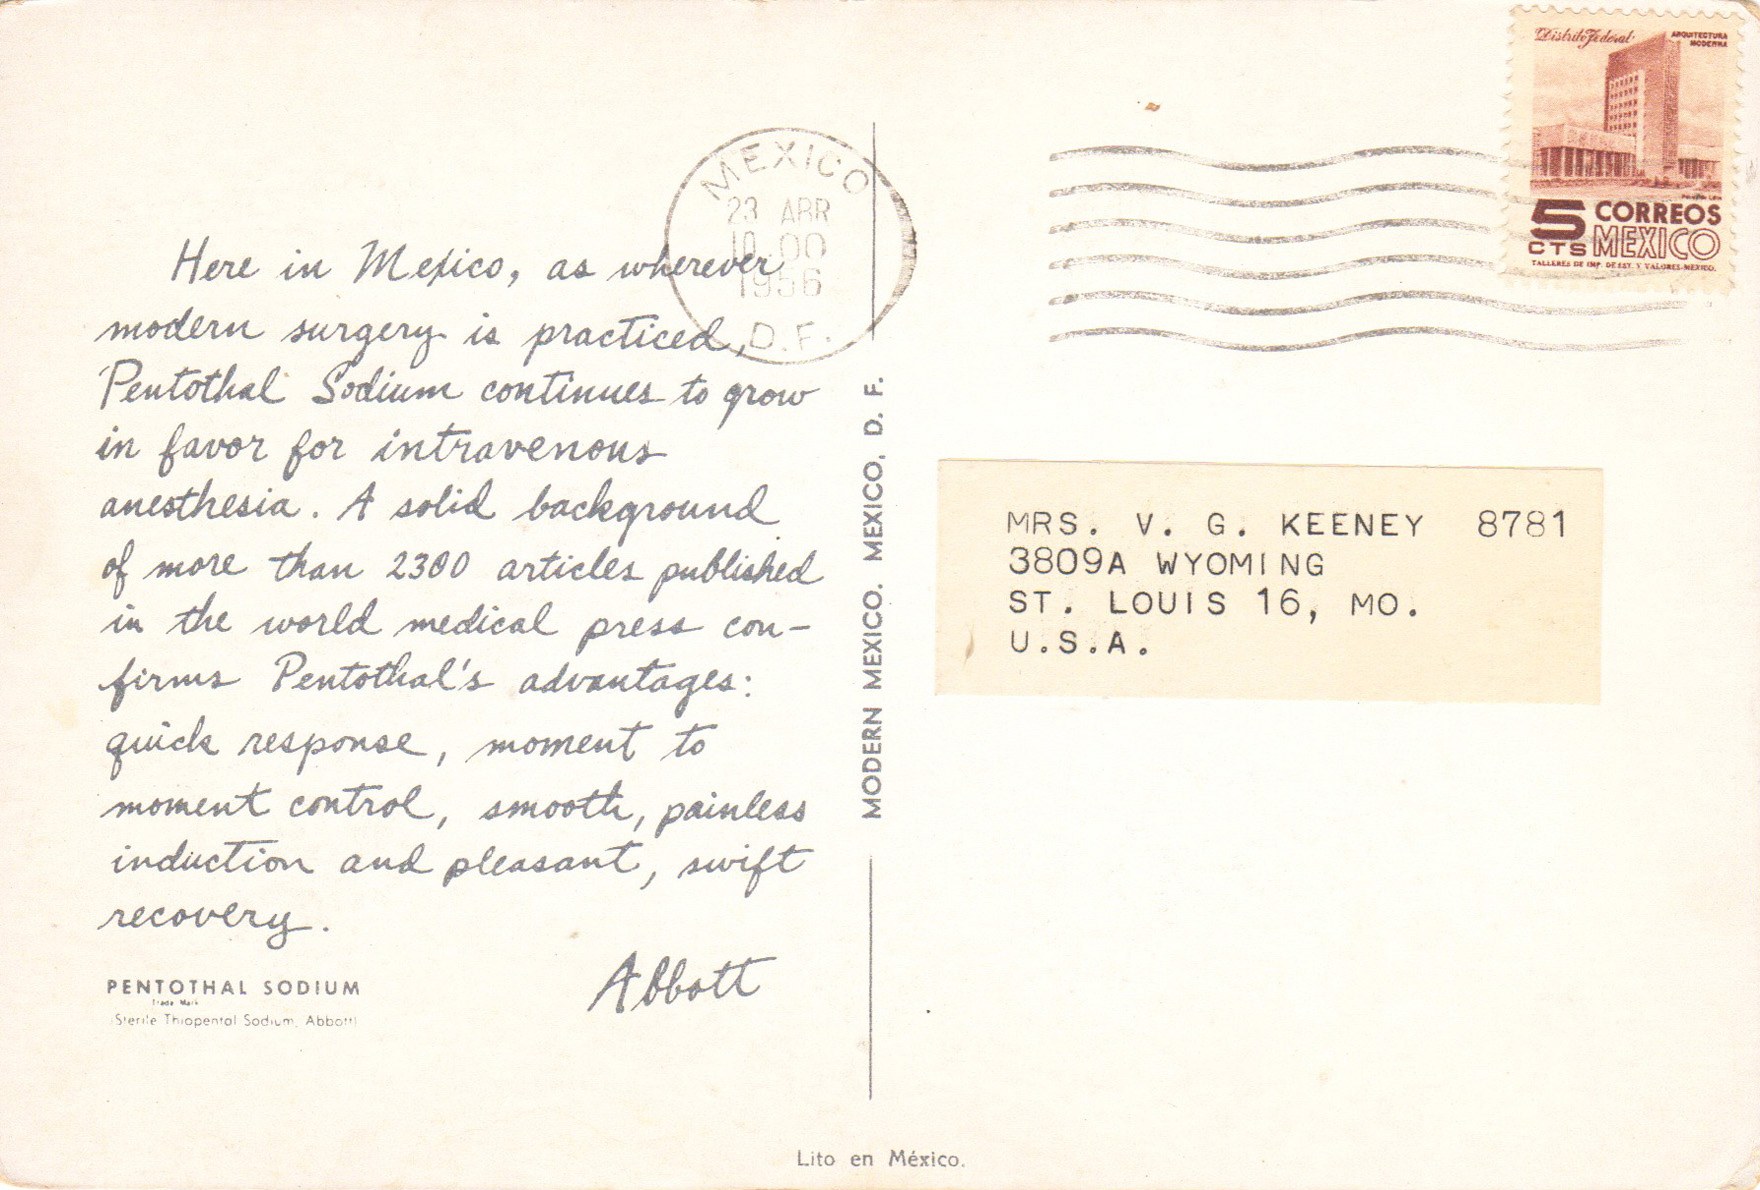 Here in Mexico, as wherever
modern surgery is practiced,
Pentothal Sodium continues to grow
in favor for intravenous
anesthesia. A solid background
of more than 2300 articles published
in the world medical press con-
firms Pentothal's advantages:
quick response, moment to
moment control, smooth, painless
induction and pleasant, swift
recovery.
Abbott
PENTOTHAL SODIUM
Trade Mark
(Sterile Thiopental Sodium, Abbott)
MEXICO
23 ABR
10.00
1956
D.F.
MODERN MEXICO. MEXICO, D. F.
Distrito Federal
ARQUITECTURA
MODERNA
5 CTS
CORREOS
MEXICO
TALLERES DE IMP. DE EST. Y VALORES-MEXICO.
MRS. V. G. KEENEY 8781
3809A WYOMING
ST. LOUIS 16, MO.
U.S.A.
Lito en México.